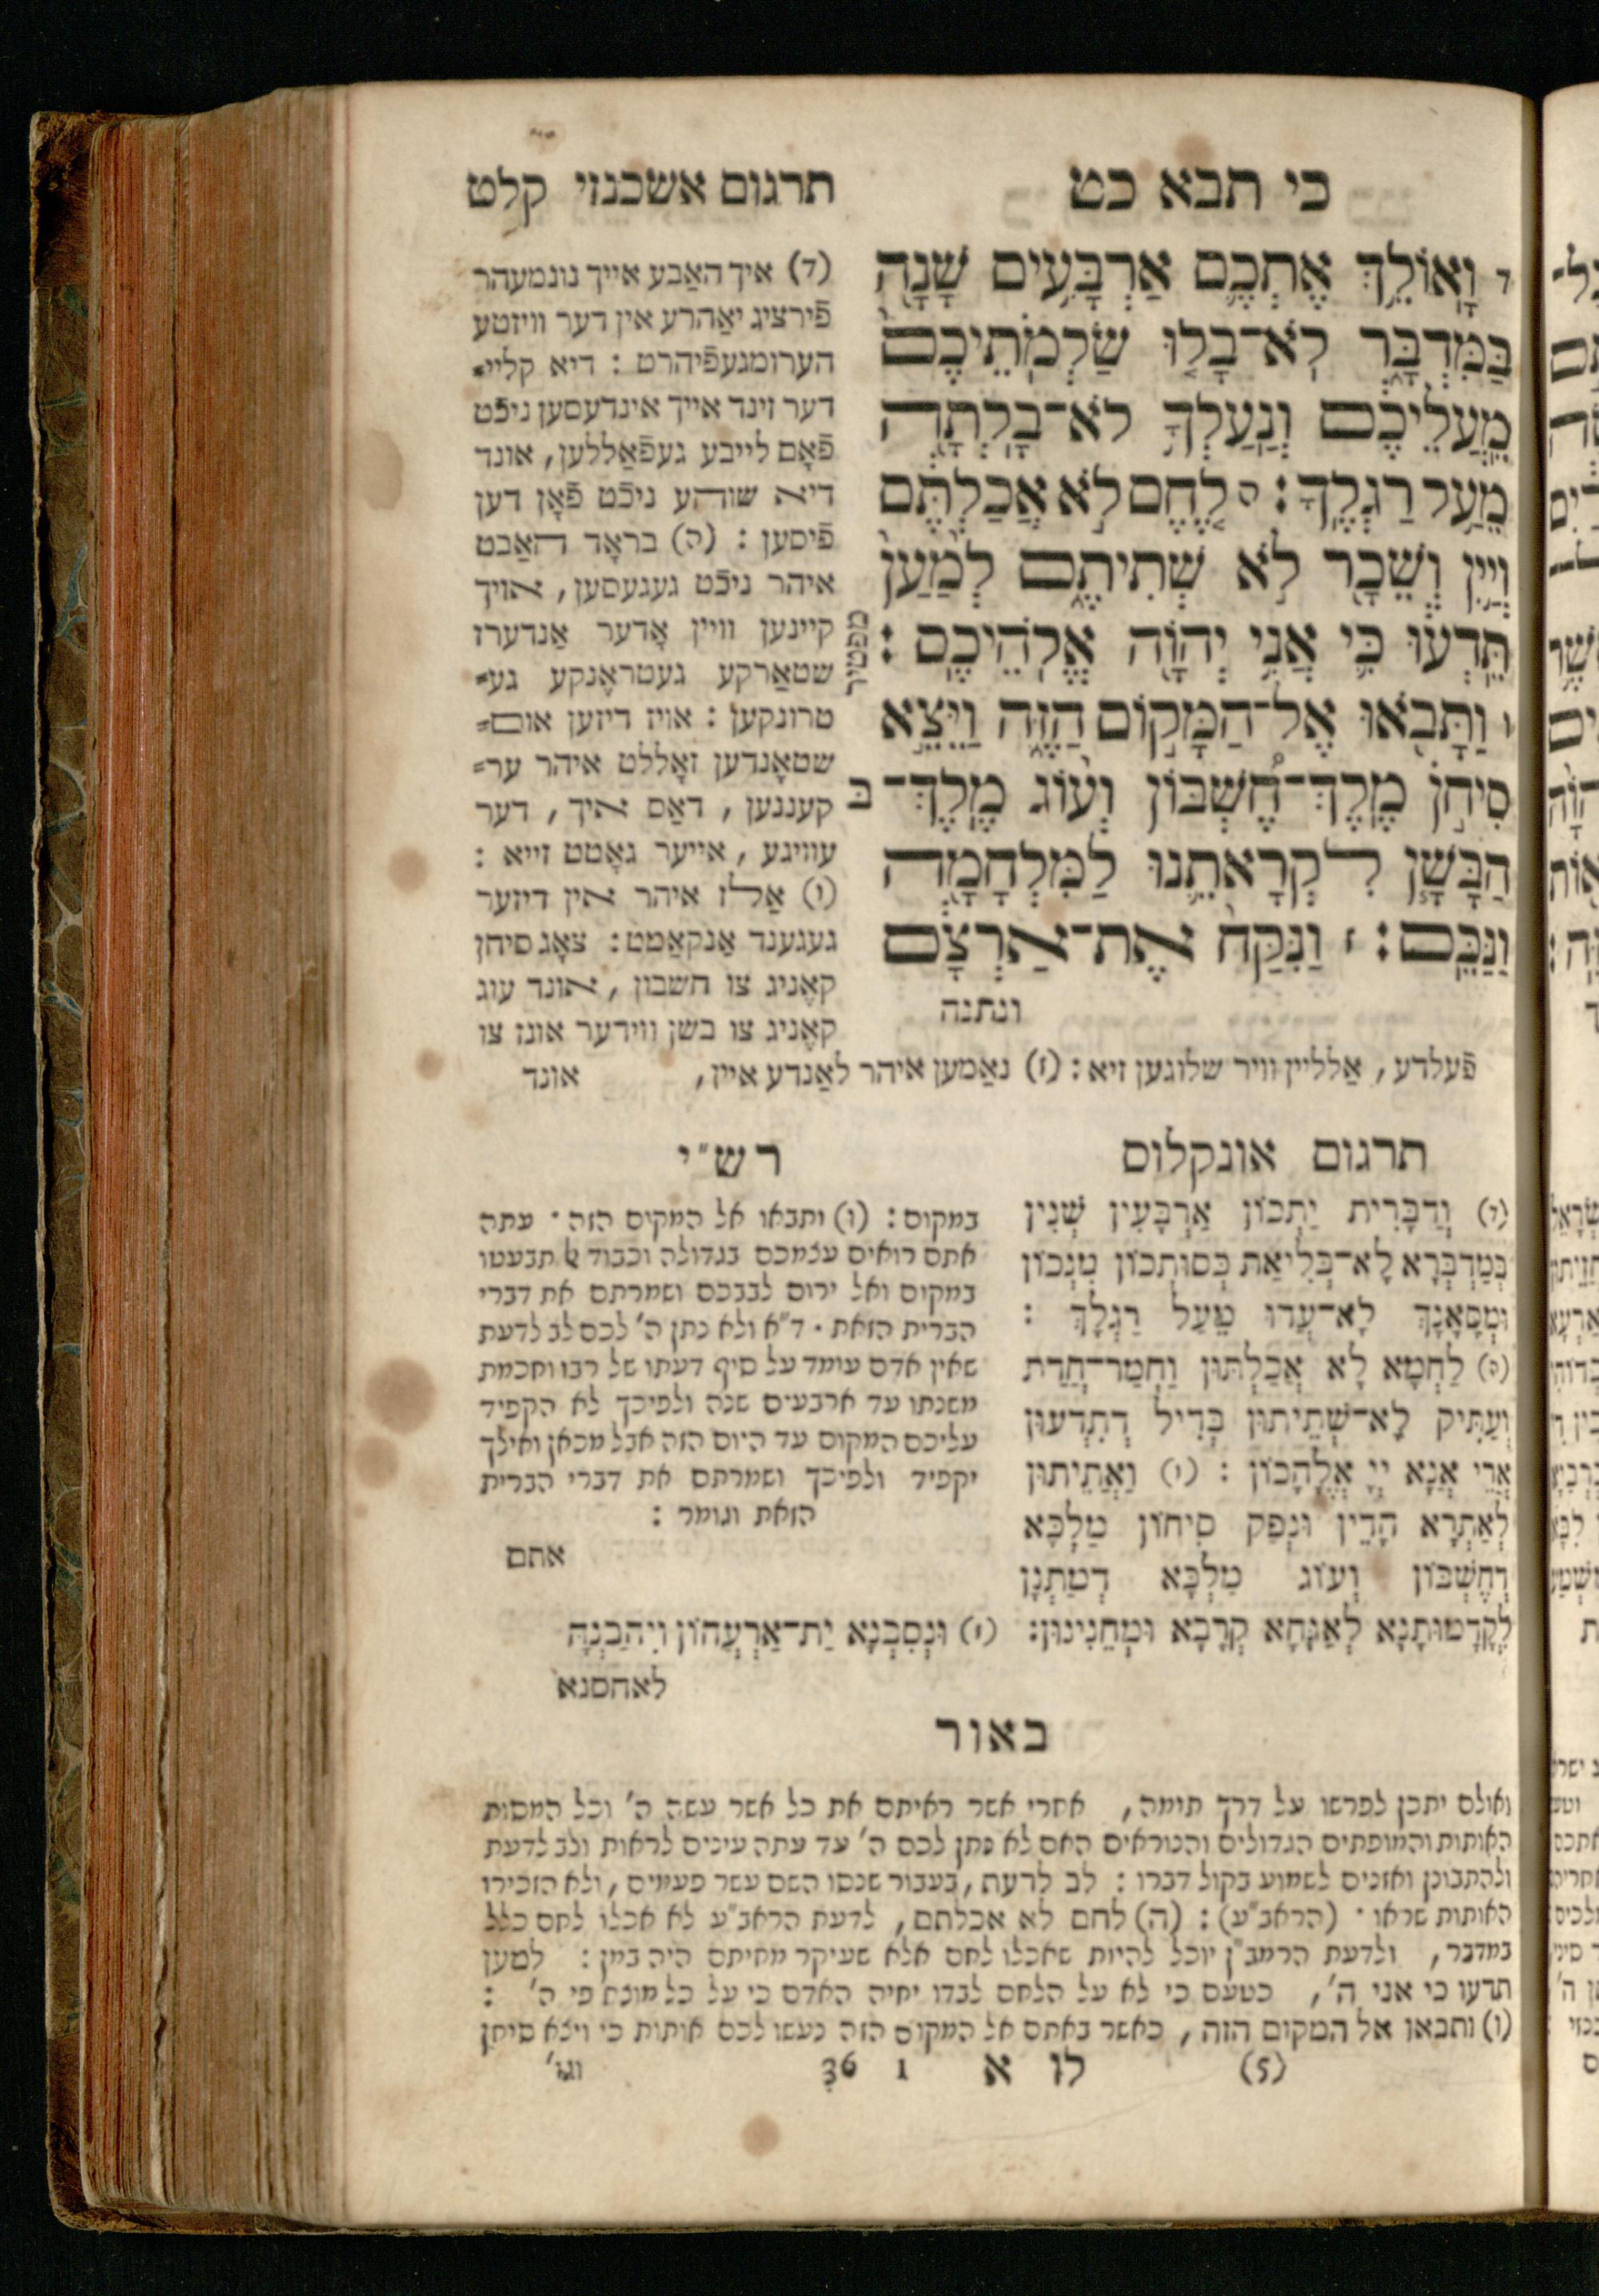 כי תבא כט
תרגום אשכנזי קלט
ד וָאוֹלֵ֥ךְ אֶתְכֶ֛ם אַרְבָּעִ֥ים שָׁנָ֖ה
בַּמִּדְבָּ֑ר לֹֽא־בָל֤וּ שַׂלְמֹֽתֵיכֶם֙
מֵֽעֲלֵיכֶ֔ם וְנַֽעַלְךָ֥ לֹא־בָֽלְתָ֖ה
מֵעַ֥ל רַגְלֶֽךָ׃ ה לֶ֚חֶם לֹ֣א אֲכַלְתֶּ֔ם
וְיַ֥יִן וְשֵׁכָ֖ר לֹ֣א שְׁתִיתֶ֑ם לְמַ֨עַן֙
תֵּֽדְע֔וּ כִּ֛י אֲנִ֥י יְהוָ֖ה אֱלֹֽהֵיכֶֽם׃
מפטיר
ו וַתָּבֹ֖אוּ אֶל־הַמָּק֣וֹם הַזֶּ֑ה וַיֵּצֵ֣א
סִיחֹ֣ן מֶֽלֶךְ־חֶ֠שְׁבּוֹן וְע֨וֹג מֶֽלֶךְ־
ב
הַבָּשָׁ֧ן לִקְרָאתֵ֛נוּ לַמִּלְחָמָ֖ה
וַנַּכֵּֽם׃ ז וַנִּקַּח֙ אֶת־אַרְצָ֔ם
ונתנה
(ד) איך האַבע אייך נונמעהר
פֿירציג יאַהרע אין דער וויזטע
הערומגעפֿיהרט : דיא קליי=
דער זינד אייך אינדעסען ניכֿט
פֿאָם לייבע געפֿאַללען, אונד
דיא שוהע ניכֿט פֿאָן דען
פֿיסען : (ה) בראָד האַבט
איהר ניכֿט געגעסען, אויך
קיינען וויין אָדער אַנדערז
שטאַרקע געטראֶנקע גע=
טרונקען : אויז דיזען אום=
שטאֶנדען זאָללט איהר ער=
קעננען, דאַס איך, דער
עוויגע, אייער גאָטט זייא :
(ו) אַלז איהר אין דיזער
געגענד אַנקאַמט: צאָג סיחן
קאֶניג צו חשבון, אונד עוג
קאֶניג צו בשן ווידער אונז צו
פֿעלדע, אַלליין וויר שלוגען זיא: (ז) נאַמען איהר לאַנדע איין,
אונד
תרגום אונקלוס
(ד) וְדַבָּרִית יַתְכוֹן אַרְבְּעִין שְׁנִין
בְּמַדְבְּרָא לָא־בְּלִיאַת כְּסוּתְכוֹן מִנְכוֹן
וּמְסָאנָךְ לָא־עֲדוֹ מֵעַל רַגְלָךְ :
(ה) לַחְמָא לָא אֲכַלְתּוּן וַחְמַר־חֲדַת
וְעַתִּיק לָא־שְׁתֵיתוּן בְּדִיל דְתִדְעוּן
אֲרֵי אֲנָא יְיָ אֱלָהָכוֹן : (ו) וַאֲתֵיתוּן
לְאַתְרָא הָדֵין וּנְפַק סִיחוֹן מַלְכָּא
דְחֶשְׁבּוֹן וְעוֹג מַלְכָּא דְמַתְנָן
לְקַדָּמוּתָנָא לְאַגָּחָא קְרָבָא וּמְחֵנִינוּן: (ז) וּנְסֵבְנָא יַת־אַרְעֲהוֹן וִיהַבְנָהּ
לאחסנא
רש״י
במקום: (ו) ותבאו אל המקום הזה · עתה
אתם רואים עצמכם בגדולה וכבוד אל תבעטו
במקום ואל ירום לבבכם ושמרתם את דברי
הברית הזאת · ד״א ולא נתן ה׳ לכם לב לדעת
שאין אדם עומד על סוף דעתו של רבו וחכמת
משנתו עד ארבעים שנה ולפיכך לא הקפיד
עליכם המקום עד היום הזה אבל מכאן ואילך
יקפיד ולפיכך ושמרתם את דברי הברית
הזאת וגומר :
אתם
באור
ואולם יתכן לפרשו על דרך תימה, אחרי אשר ראיתם את כל אשר עשה ה׳ וכל המסות
האותות והמופתים הגדולים והנוראים האם לא נתן לכם ה׳ עד עתה עינים לראות ולב לדעת
ולהתבונן ואזנים לשמוע בקול דברו : לב לדעת, בעבור שנסו השם עשר פעמים, ולא הזכירו
האותות שראו · (הראב״ע): (ה) לחם לא אכלתם, לדעת הראב״ע לא אכלו לחם כלל
במדבר, ולדעת הרמב״ן יוכל להיות שאכלו לחם אלא שעיקר מחיתם היה במן : למען
תדעו כי אני ה׳, כטעם כי לא על הלחם לבדו יחיה האדם כי על כל מוצא פי ה׳ :
(ו) ותבאו אל המקום הזה, כאשר באתם אל המקום הזה נעשו לכם אותות כי ויצא סיחן
(5) לו א 1 36
וגו׳